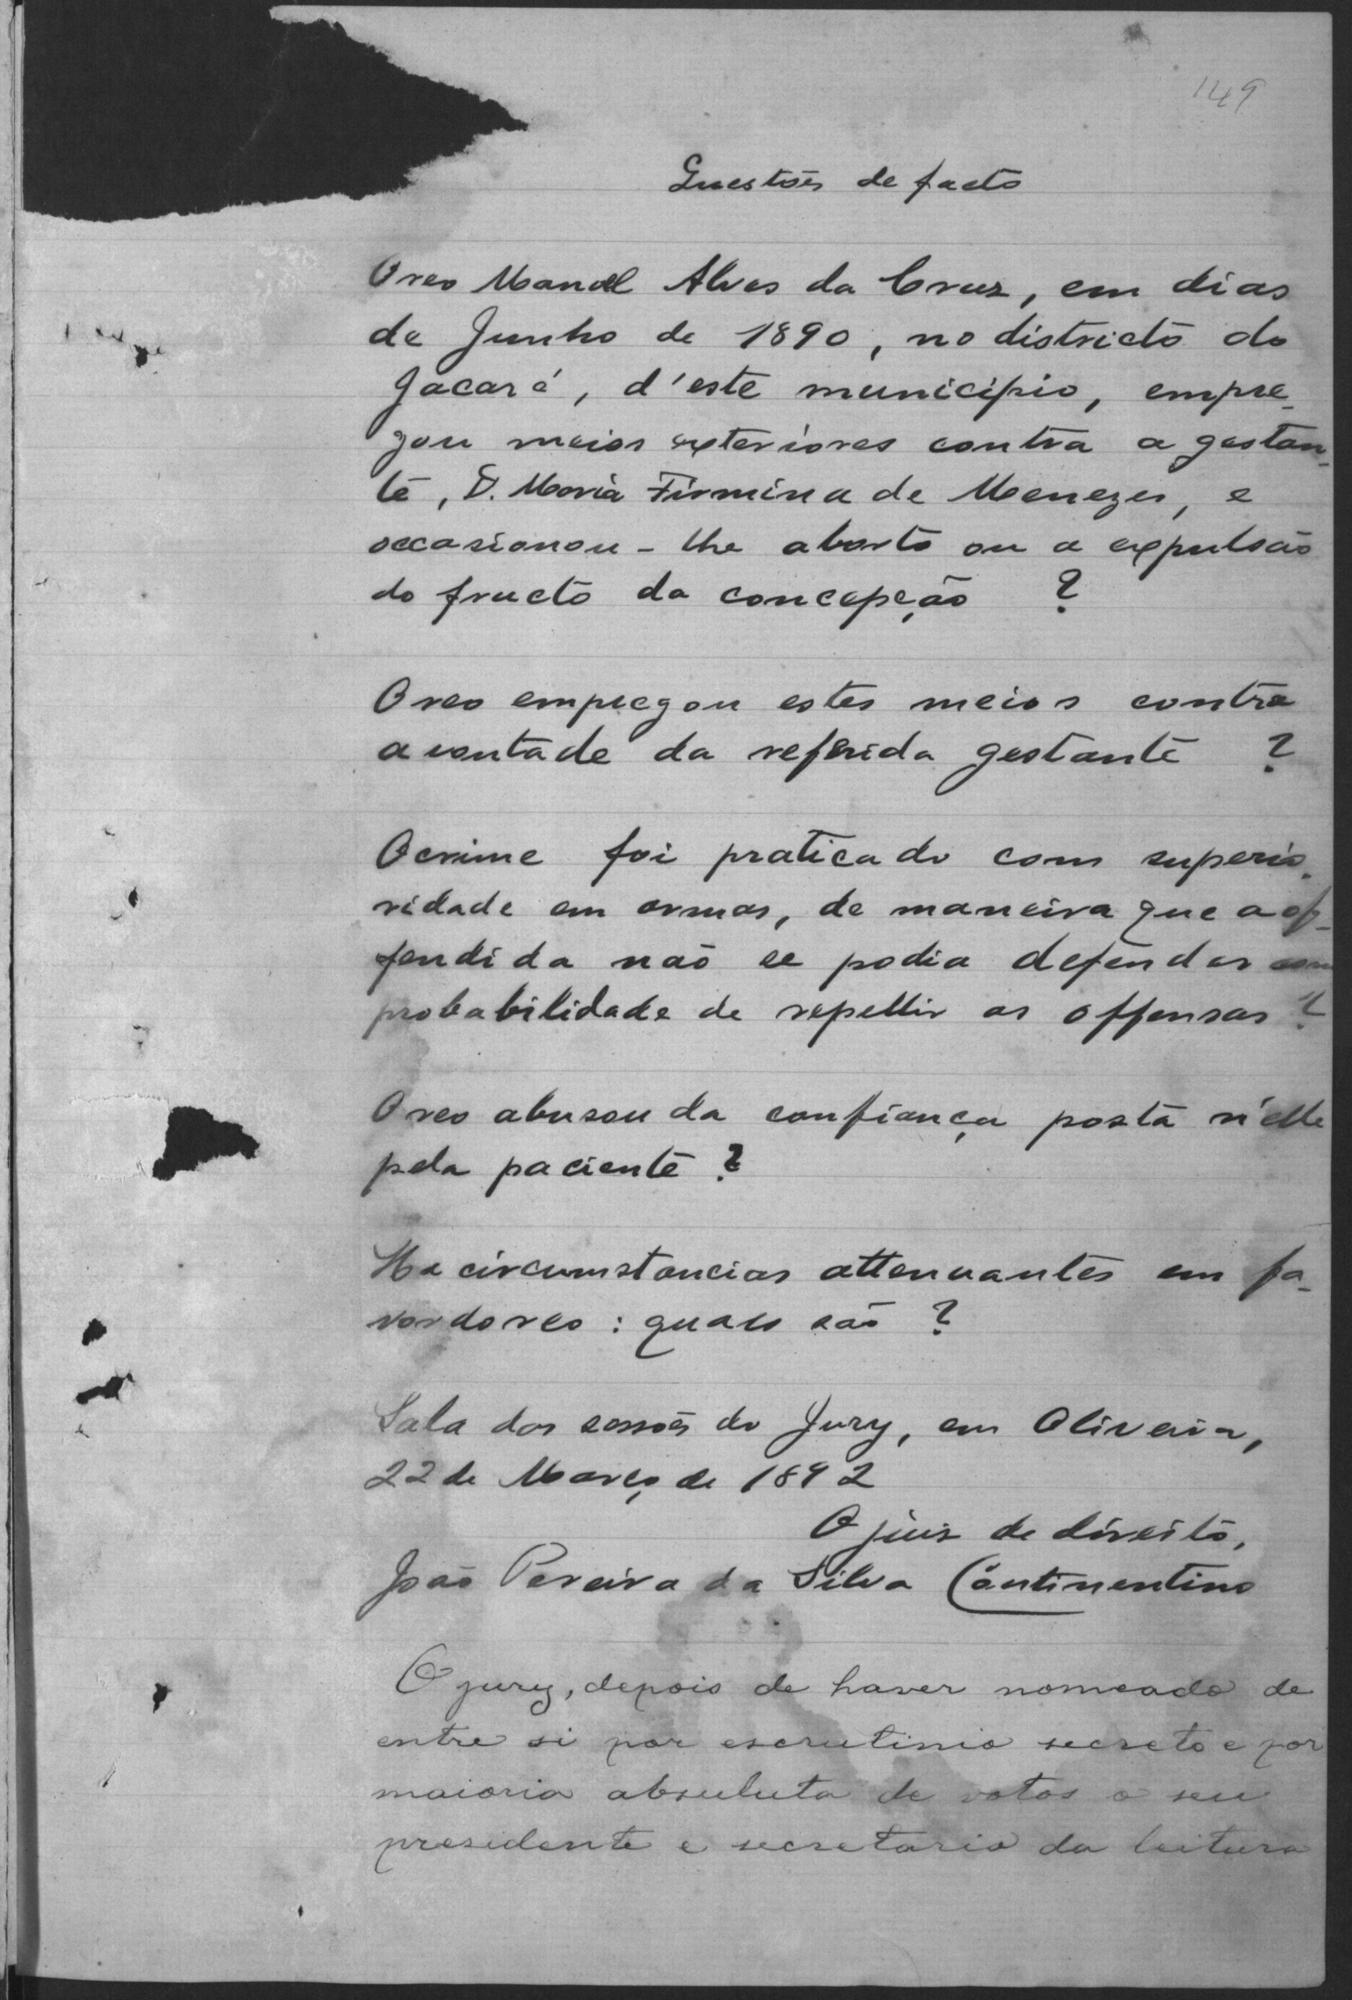 149
Questões de facto
O reo Manoel Alves da Cruz, em dias
de Junho de 1890, no districto do
Jacaré, d'este municipio, empre-
gou meios exteriores contra a gestan-
te, D. Maria Firmina de Menezes, e
occasionou-lhe aborto ou a expulsão
do fructo da concepção ?
O reo empregou estes meios contra
a vontade da referida gestante ?
O crime foi praticado com superio-
ridade em armas, de maneira que a of-
fendida não se podia defender com
probabilidade de repellir as offensas ?
O reo abusou da confiança posta n'elle
pela paciente ?
Ha circumstancias attenuantes em fa-
vor do reo : quaes são ?
Sala das sessões do Jury, em Oliveira,
22 de Março de 1892
O juiz de direito,
João Pereira da Silva Continentino
O jury, depois de haver nomeado de
entre si por escrutinio secreto e por
maioria absuluta de votos o seu
presidente e secretario da leitura